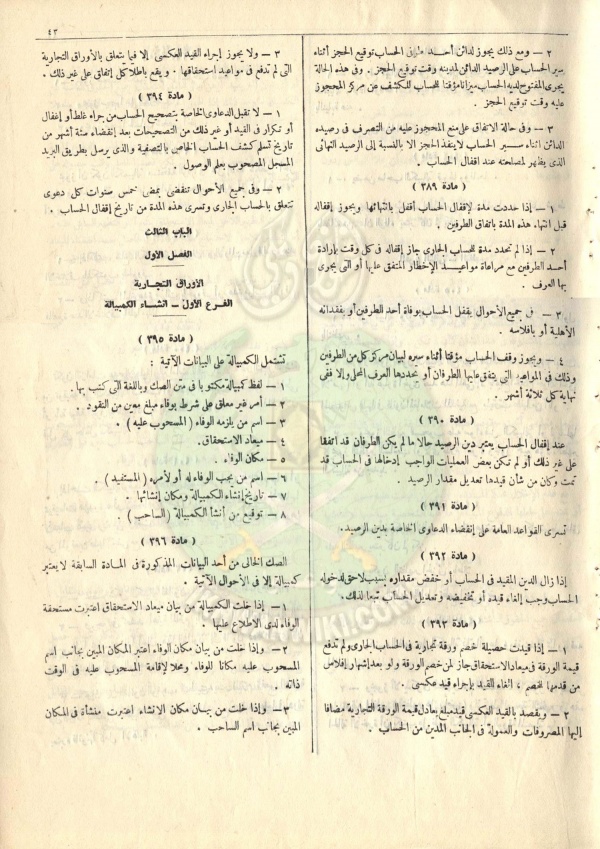 ٤٣
٢ — ومع ذلك يجوز لدائن أحد طرفى الحساب توقيع الحجز أثناء
سير الحساب على الرصيد الدائن لمدينه وقت توقيع الحجز . وفى هذه الحالة
يجرى المفتوح لديه الحساب ميزانا مؤقتا للحساب للكشف عن مركز المحجوز
عليه وقت توقيع الحجز .
٣ — وفى حالة الاتفاق على منع المحجوز عليه من التصرف فى رصيده
الدائن أثناء سير الحساب لا ينفذ الحجز الا بالنسبة إلى الرصيد النهائى
الذى يظهر لمصلحته عند اقفال الحساب .
( مادة ٣٨٩ )
١ — إذا حددت مدة لإقفال الحساب أقفل بانتهائها ويجوز إقفاله
قبل انتهاء هذه المدة باتفاق الطرفين .
٢ — إذا لم تحدد مدة للحساب الجارى جاز إقفاله فى كل وقت بإرادة
أحد الطرفين مع مراعاة مواعيد الإخطار المتفق عليها أو التى يجرى
بها العرف .
٣ — فى جميع الأحوال يقفل الحساب بوفاة أحد الطرفين أو بفقدانه
الأهلية أو بافلاسه .
٤ — ويجوز وقف الحساب مؤقتا أثناء سيره لبيان مركز كل من الطرفين
وذلك فى المواعيد التى يتفق عليها الطرفان أو يحددها العرف المحلى وإلا ففى
نهاية كل ثلاثة أشهر .
( مادة ٣٩٠ )
عند إقفال الحساب يعتبر دين الرصيد حالا ما لم يكن الطرفان قد اتفقا
على غير ذلك أو لم تكن بعض العمليات الواجب إدخالها فى الحساب قد
تمت وكان من شأن قيدها تعديل مقدار الرصيد .
( مادة ٣٩١ )
تسرى القواعد العامة على إنقضاء الدعاوى الخاصة بدين الرصيد.
( مادة ٣٩٢ )
إذا زال الدين المقيد فى الحساب أو خفض مقداره بسبب لاحق لدخوله
الحساب وجب إلغاء قيده أو تخفيضه وتعديل الحساب تبعا لذلك.
( مادة ٣٩٣ )
١ — إذا قيدت حصيلة خصم ورقة تجارية فى الحساب الجارى ولم تدفع
قيمة الورقة فى ميعاد الاستحقاق جاز لمن خصم الورقة ولو بعد إشهار إفلاس
من قدمها للخصم ، الغاء القيد بإجراء قيد عكسى .
٢ — ويقصد بالقيد العكسى قيد مبلغ يعادل قيمة الورقة التجارية مضافا
إليها المصروفات والعمولة فى الجانب المدين من الحساب .
٣ — ولا يجوز إجراء القيد العكسى إلا فيما يتعلق بالأوراق التجارية
التى لم تدفع فى مواعيد استحقاقها . ويقع باطلا كل إتفاق على غير ذلك .
( مادة ٣٩٤ )
١ — لا تقبل الدعاوى الخاصة بتصحيح الحساب من جراء غلط أو إغفال
أو تكرار فى القيد أو غير ذلك من التصحيحات بعد إنقضاء ستة أشهر من
تاريخ تسلم كشف الحساب الخاص بالتصفية والذى يرسل بطريق البريد
المسجل المصحوب بعلم الوصول .
٢ — وفى جميع الأحوال تنقضى بمضى خمس سنوات كل دعوى
تتعلق بالحساب الجارى وتسرى هذه المدة من تاريخ إقفال الحساب .
الباب الثالث
الفصل الأول
الأوراق التجارية
الفرع الأول – انشاء الكمبيالة
( مادة ٣٩٥ )
تشتمل الكمبيالة على البيانات الآتية :
١ — لفظ كمبيالة مكتوبا فى متن الصك وباللغة التى كتب بها .
٢ — أمر غير معلق على شرط بوفاء مبلغ معين من النقود .
٣ — اسم من يلزمه الوفاء ( المسحوب عليه ) .
٤ — ميعاد الاستحقاق .
٥ — مكان الوفاء .
٦ — اسم من يجب الوفاء له أو لأمره ( المستفيد ) .
٧ — تاريخ إنشاء الكمبيالة ومكان إنشائها .
٨ — توقيع من أنشأ الكمبيالة ( الساحب ) .
( مادة ٣٩٦ )
الصك الخالى من أحد البيانات المذكورة فى المادة السابقة لا يعتبر
كمبيالة إلا فى الأحوال الآتية .
١ — إذا خلت الكمبيالة من بيان ميعاد الاستحقاق اعتبرت مستحقة
الوفاء لدى الاطلاع عليها .
٢ — وإذا خلت من بيان مكان الوفاء اعتبر المكان المبين بجانب اسم
المسحوب عليه مكانا للوفاء ومحلا لإقامة المسحوب عليه فى الوقت
ذاته .
٣ — وإذا خلت من بيان مكان الانشاء اعتبرت منشأة فى المكان
المبين بجانب اسم الساحب .